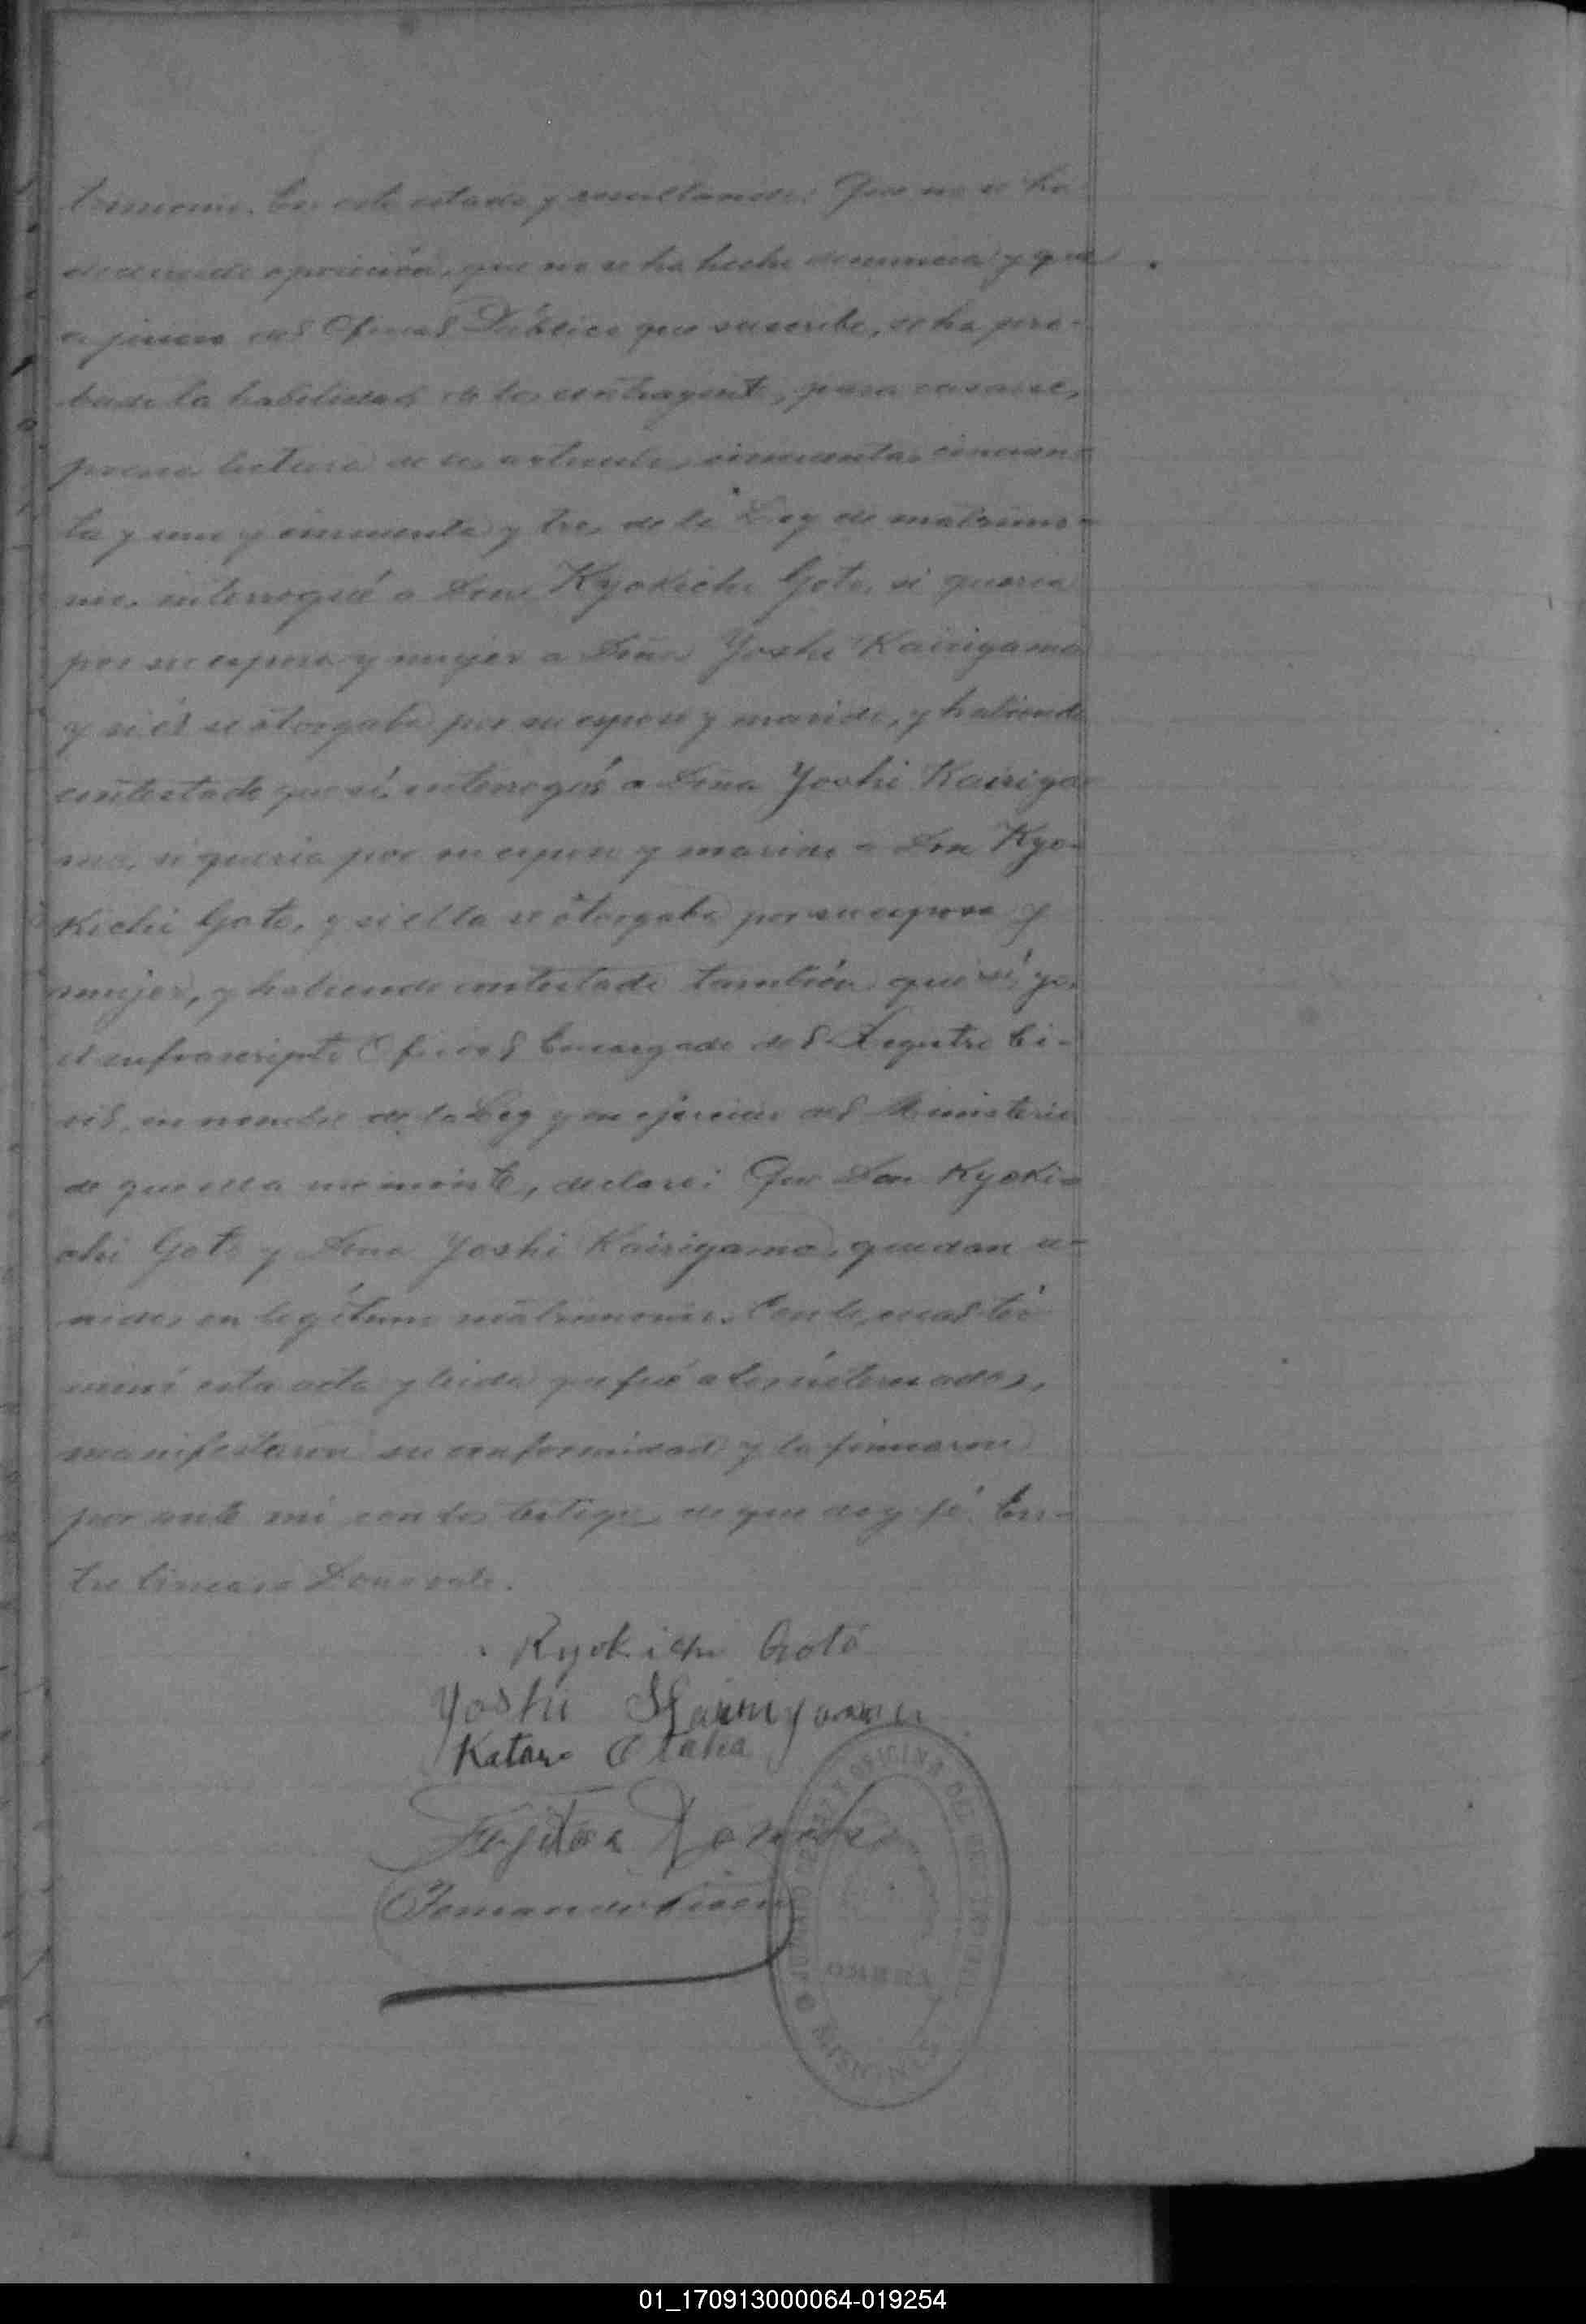 trimonio. En este estado y resultando: Que no se ha
deducido oposición, que no se ha hecho denuncia y que
a juicio del Oficial Público que suscribe, se ha pro-
bado la habilidad de los contrayentes, para casarse,
previa lectura de los artículos cincuenta, cincuen-
ta y uno y cincuenta y tres de la Ley de matrimo-
nio, interrogué a Don Kyokichi Goto, si quería
por su esposa y mujer a Doña Yoshi Kairiyama
y si él se otorgaba por su esposo y marido, y habiendo
contestado que sí, interrogué a Doña Yoshi Kairiya-
ma, si quería por su esposo y marido a Don Kyo-
kichi Goto, y si ella se otorgaba por su esposa y
mujer, y habiendo contestado también que sí, yo,
el infrascripto Oficial Encargado del Registro Ci-
vil, en nombre de la Ley y en ejercicio del Ministerio
de que ella me inviste, declaré: Que Don Kyoki-
chi Goto y Doña Yoshi Kairiyama, quedan u-
nidos en legítimo matrimonio. Con lo cual ter
miné esta acta y leida que fué a los interesados,
manifestaron su conformidad y la firmaron
por ante mí con los testigos de que doy fé. En-
tre lineas = Dona vale.
Kyokichi Goto
Yoshi Kairiyama
Kataro Otaka
Fujitaro
Fernando
OFICINA DEL REGISTRO CIVIL
MISIONES